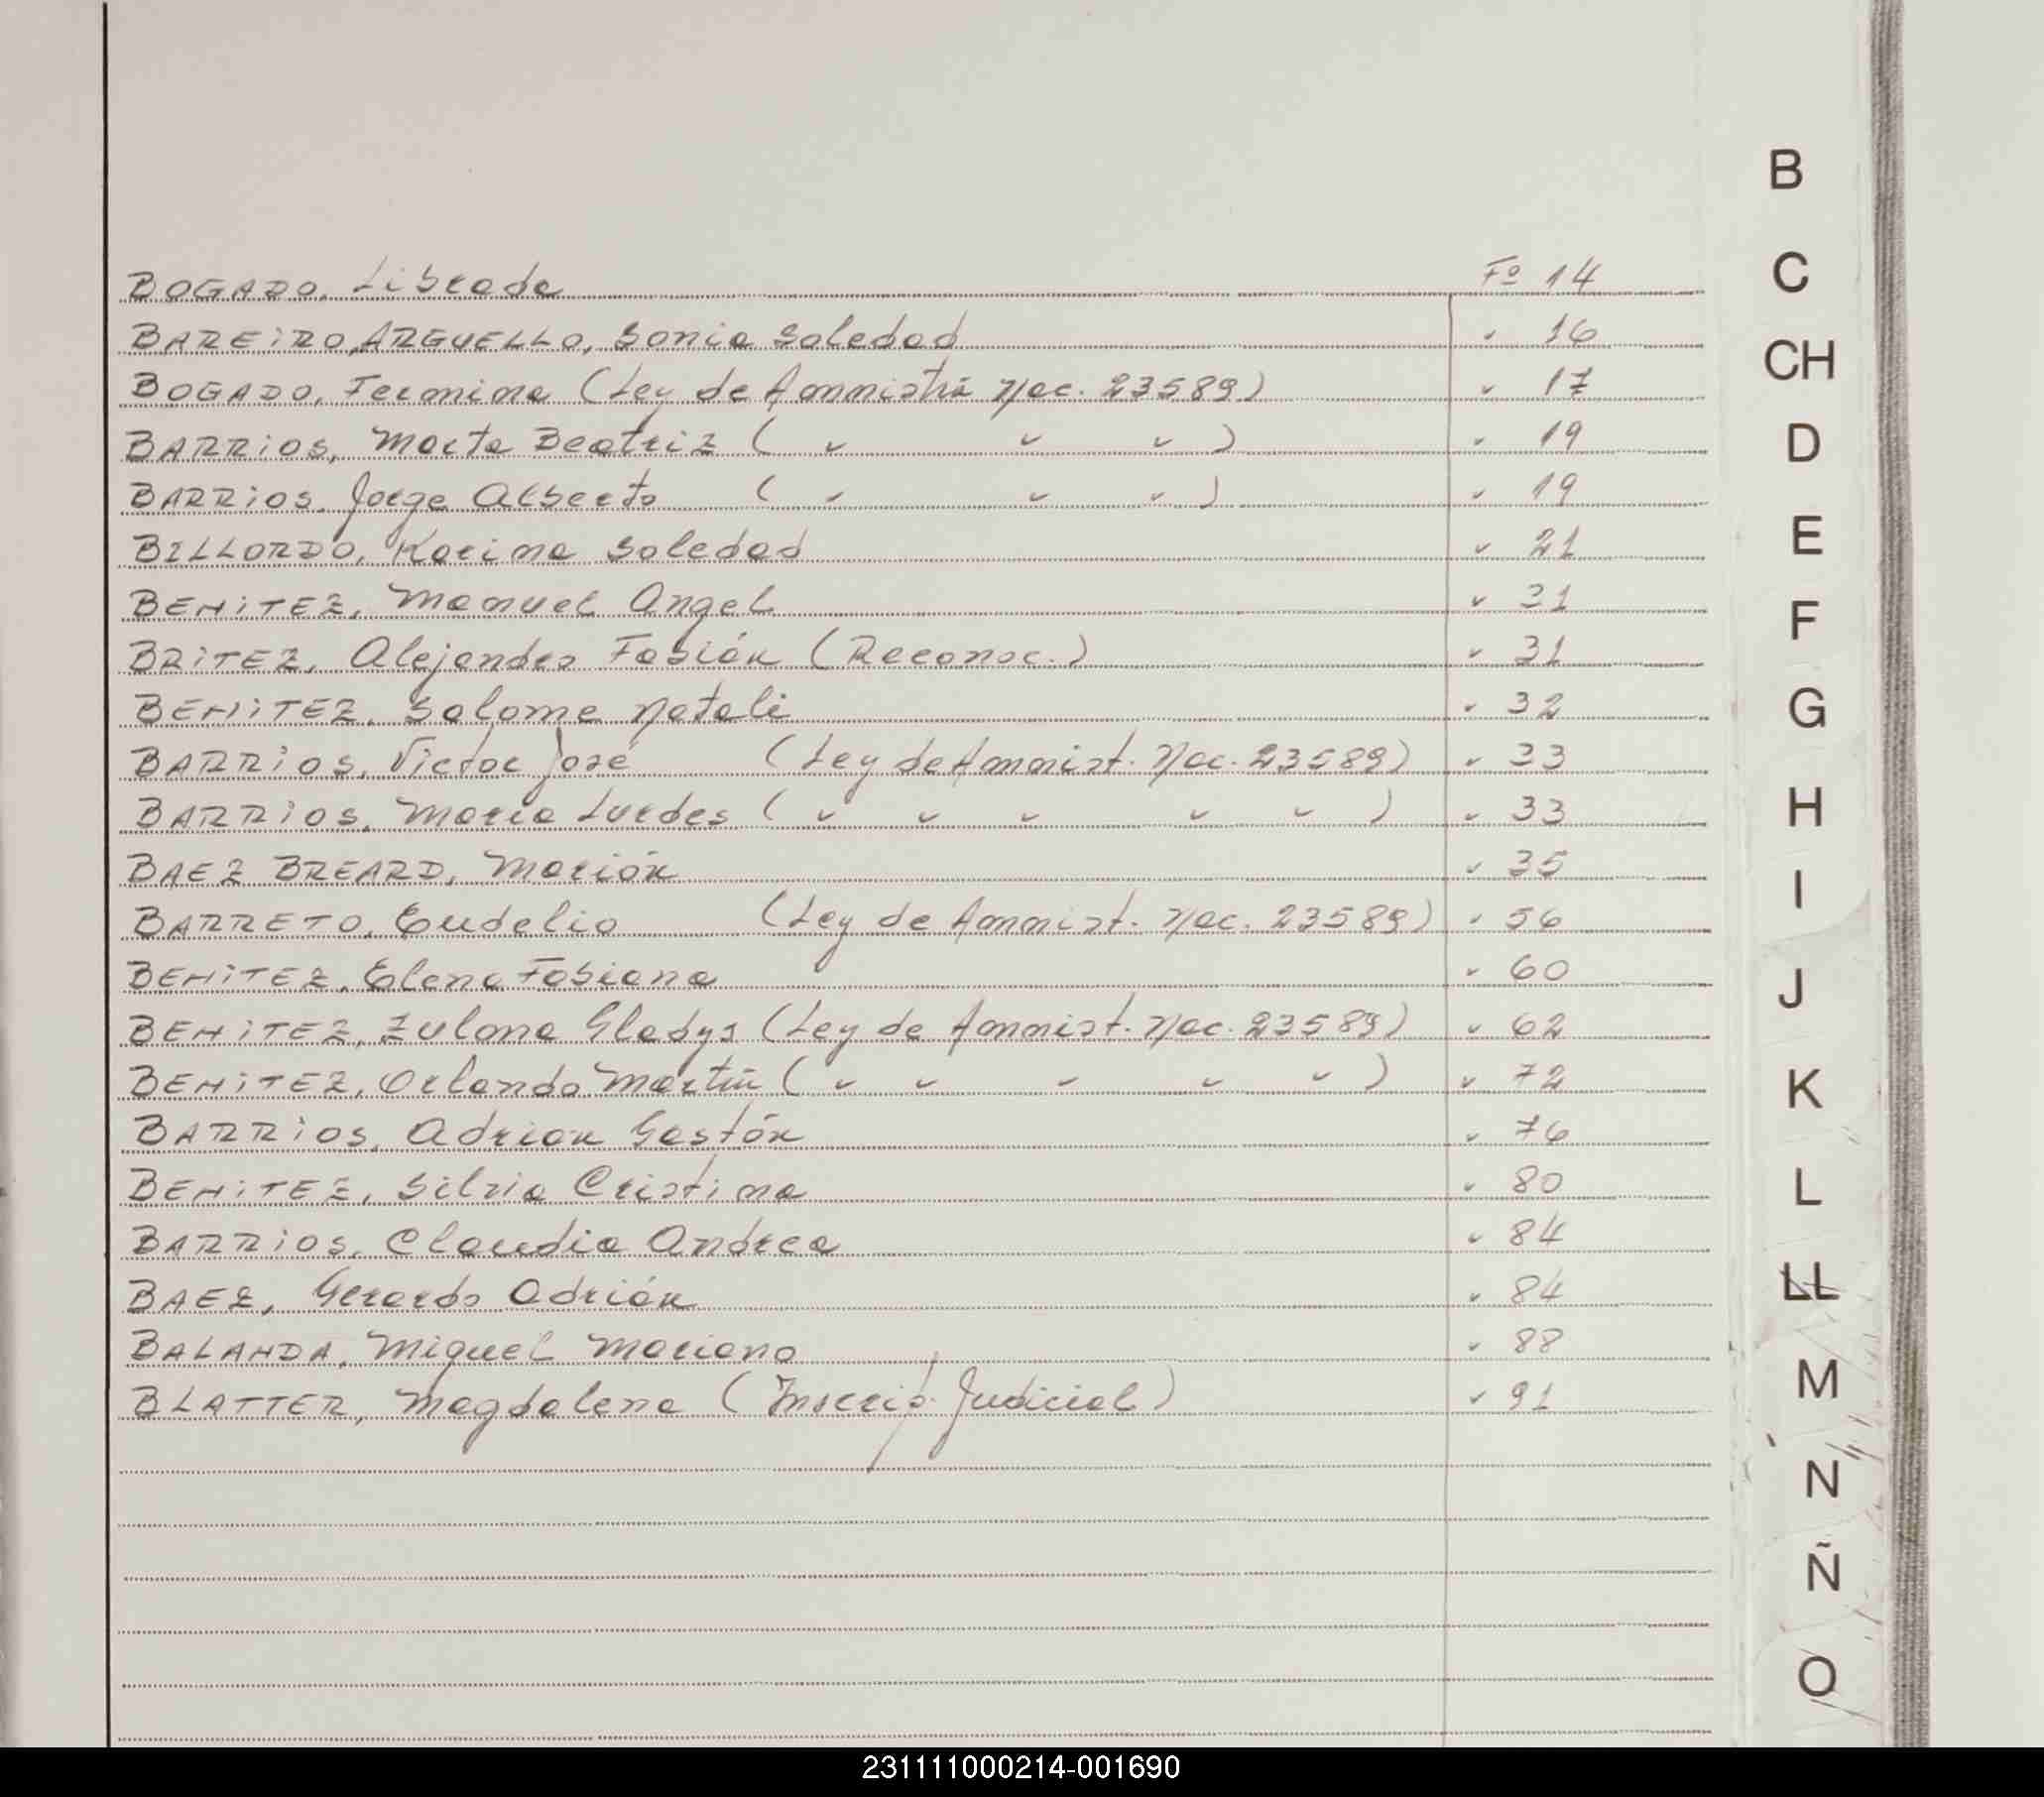 BOGADO, Librada Fº 14
BAREIRO ARGUELLO, Sonia Soledad " 16
BOGADO, Fermina (Ley de Amnistía Nac. 23589) " 17
BARRIOS, Marta Beatriz ( " " " ) " 19
BARRIOS, Jorge Alberto ( " " " ) " 19
BILLORDO, Karina Soledad " 21
BENITEZ, Manuel Angel " 31
BRITEZ, Alejandro Fabián (Reconoc.) " 31
BENITEZ, Salome Natali " 32
BARRIOS, Victor José (Ley de Amnist. Nac. 23589) " 33
BARRIOS, Maria Lurdes ( " " " " " ) " 33
BAEZ BREARD, Marión " 35
BARRETO, Eudelio (Ley de Amnist. Nac. 23589) " 56
BENITEZ, Elena Fabiana " 60
BENITEZ, Zulana Gladys (Ley de Amnist. Nac. 23589) " 62
BENITEZ, Orlando Martín ( " " " " " ) " 72
BARRIOS, Adrian Gastón " 76
BENITEZ, Silvia Cristina " 80
BARRIOS, Claudia Andrea " 84
BAEZ, Gerardo Adrián " 84
BALANDA, Miguel Mariano " 88
BLATTER, Magdalena (Inscrip. Judicial) " 91
B
C
CH
D
E
F
G
H
I
J
K
L
LL
M
N
Ñ
O
231111000214-001690